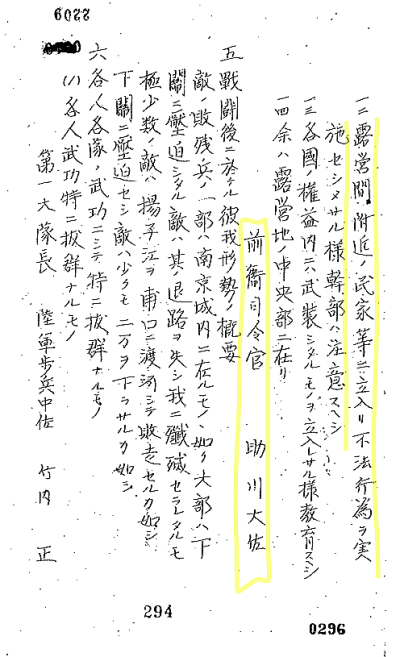 6022
一二露営間附近ノ民家等ニ立入リ不法行為ヲ実
施セシメサル様幹部ハ注意スヘシ
一三各國ノ権益内ニハ武装シタルモノヲ立入レサル様教育スヘシ
一四余ハ露営地ノ中央部ニ在リ
前衛司令官 助川大佐
五戰闘後ニ於ケル彼我形勢ノ概要
敵ノ敗残兵ノ一部ハ南京城内ニ在ルモノヽ如ク大部ハ下
關ニ壓迫シタル敵ハ其ノ退路ヲ失シ我ニ殲滅セラレタルモ
極少数ノ敵ハ揚子江ヲ浦口ニ渡河シテ敗走セルカ如シ
下關ニ壓迫セシ敵ハ少クモ二万ヲ下ラサルカ如シ
六各人各隊ノ武功ニシテ特ニ抜群ナルモノ
(1)各人武功特ニ抜群ナルモノ
第一大隊長 陸軍歩兵中佐 竹内 正
294
0296